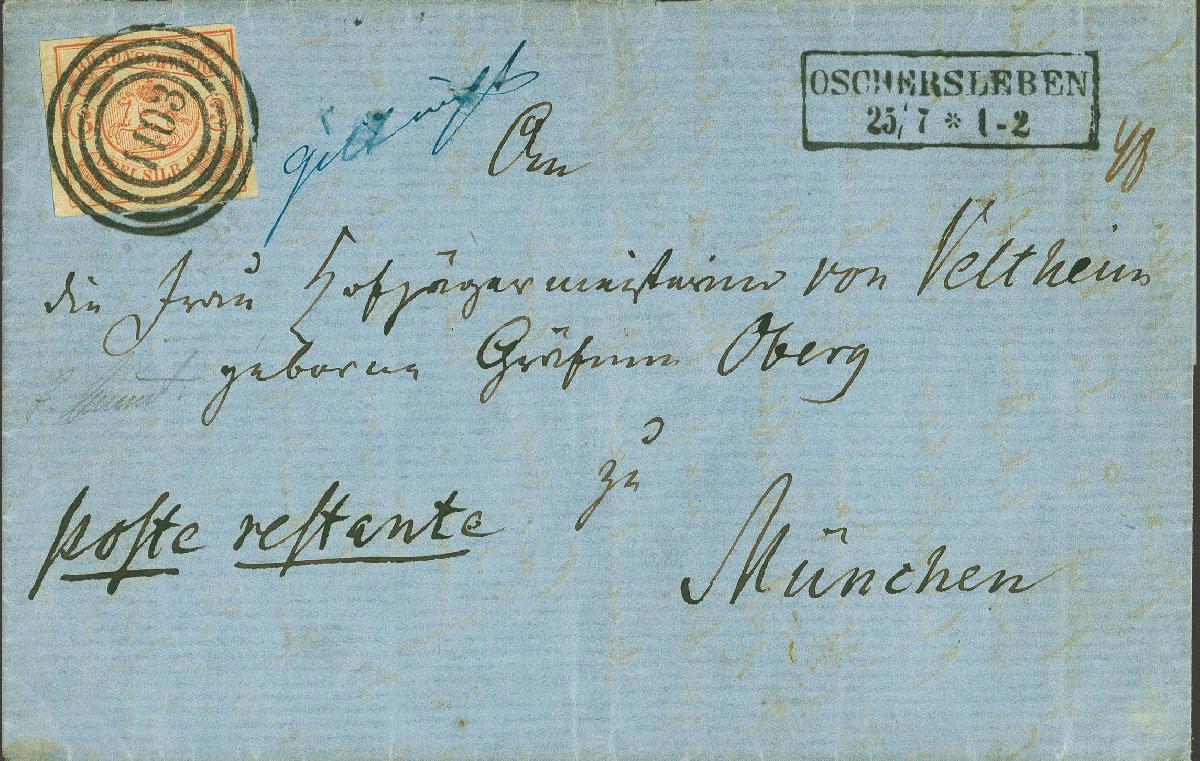 BRAUNSCHWEIG
1103
3 3
DREI SILB. GR.
gilt nicht
OSCHERSLEBEN
25/7 * 1-2
An
die Frau Hofjägermeisterinn von Veltheim
geborne Gräfinn Oberg
zu
poste restante
München